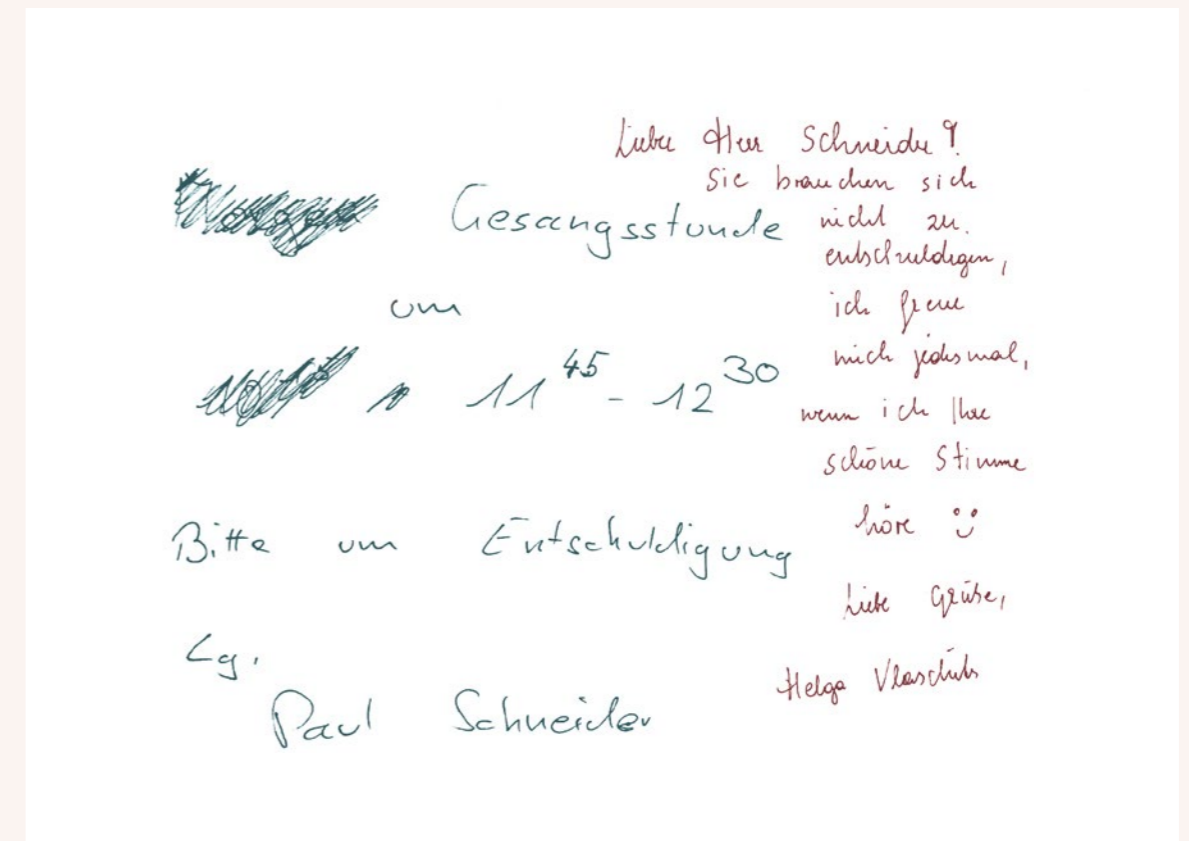 Gesangsstunde
um
11 45 - 12 30
Bitte um Entschuldigung
Lg.
Paul Schneider
Lieber Herr Schneider!
Sie brauchen sich
nicht zu
entschuldigen,
ich freue
mich jedesmal,
wenn ich Ihre
schöne Stimme
höre :)
Liebe Grüße,
Helga